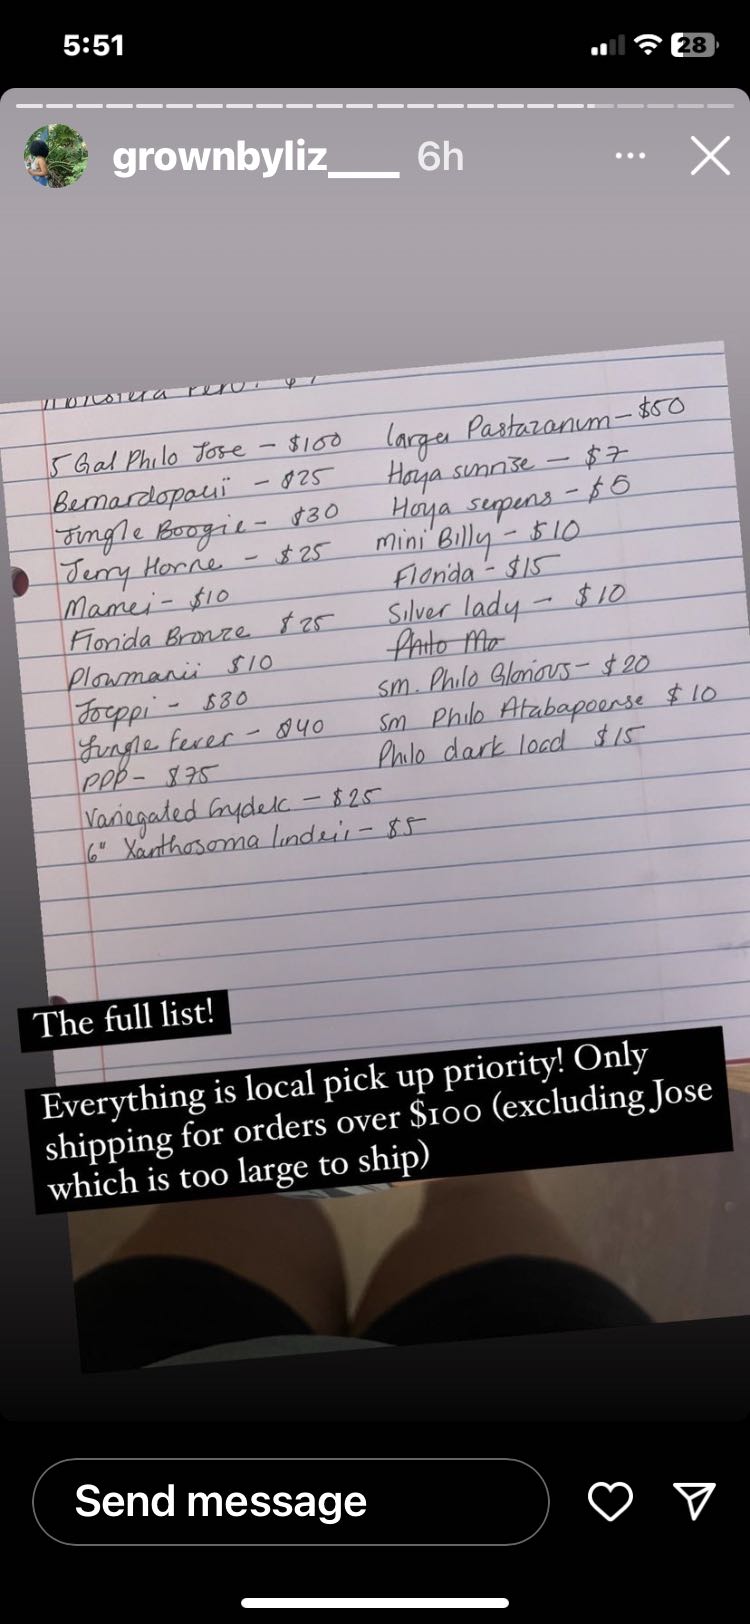 5:51
28
grownbyliz___ 6h
5 Gal Philo Jose - $100
Bernardopazii - $25
Jungle Boogie - $30
Jerry Horne - $25
Mamei - $10
Florida Bronze $25
Plowmanii $10
Joeppi - $30
Jungle Fever - $40
PPP - $75
Variegated Gydelc - $25
6" Xanthosoma lindeii - $5
larger Pastazanum - $50
Hoya sunrise - $7
Hoya serpens - $5
mini Billy - $10
Florida - $15
Silver lady - $10
Philo Mo
sm. Philo Glorious - $20
sm Philo Atabapoense $10
Philo dark lord $15
The full list!
Everything is local pick up priority! Only
shipping for orders over $100 (excluding Jose
which is too large to ship)
Send message